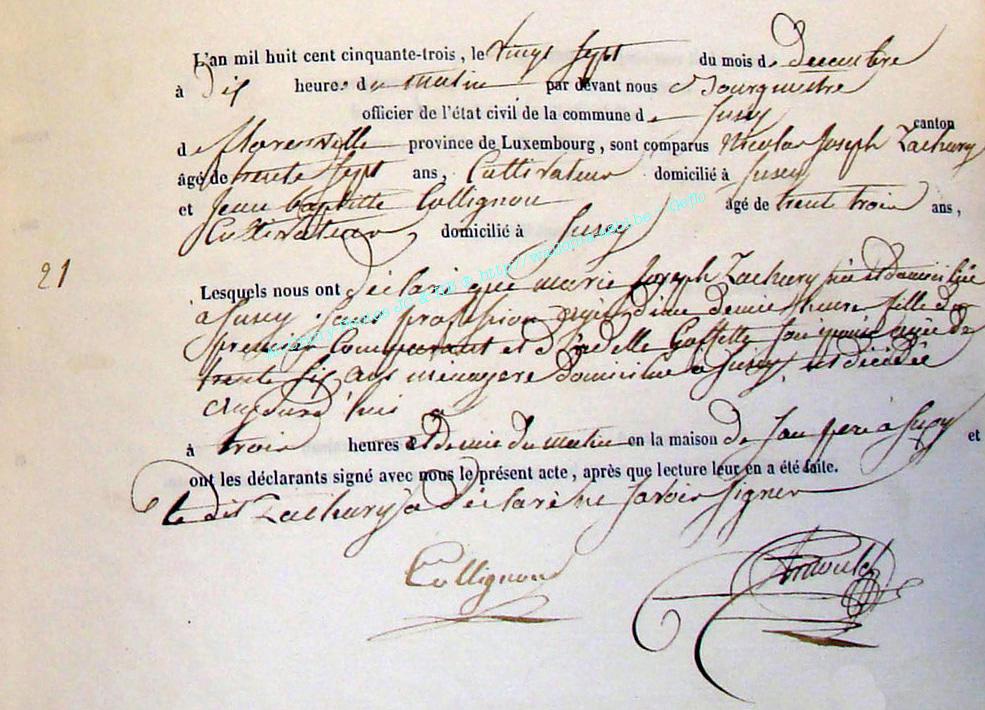 L'an mil huit cent cinquante-trois, le vingt sept du mois de decembre
à dix heures du matin par devant nous Bourgmestre
officier de l'état civil de la commune de Suxy
canton
de florenville province de Luxembourg, sont comparus Nicolas Joseph Zachary
âgé de trente sept ans, Cultivateur domicilié à Suxy
et Jean baptiste Collignon âgé de trente trois ans,
Cultivateur, domicilié à Suxy
21
Lesquels nous ont déclaré que marie Joseph Zachary née et domiciliée
a Suxy sans profession agée d'une demie heure, fille du
premier Comparant et d'adelle Goffette son épouse agée de
trente six ans ménagere domiciliée a Suxy, est décédée
aujourd'hui
à trois heures et demie du matin en la maison de son pere a Suxy et
ont les déclarants signé avec nous le présent acte, après que lecture leur en a été faite.
le dit Zachary a déclaré ne savoir signer
Collignon